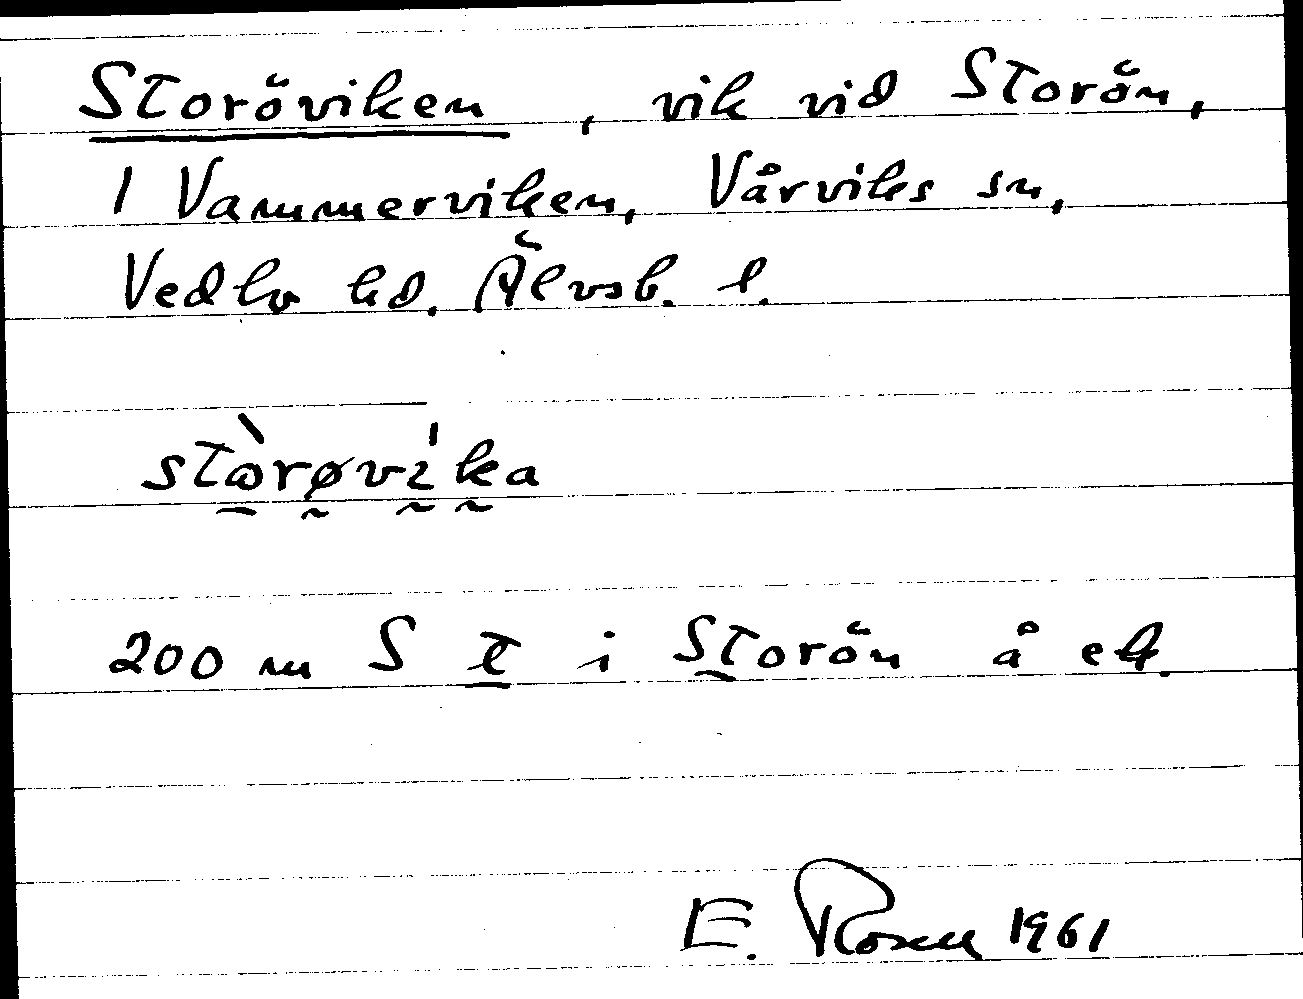 Storöviken, vik vid Storön,
1 Vammerviken, Vårviks sn,
Vedbo hd. Älvsb. l.
stòrøvi̍ka
200 m S t i Storön å ek.
E. Rosell 1961